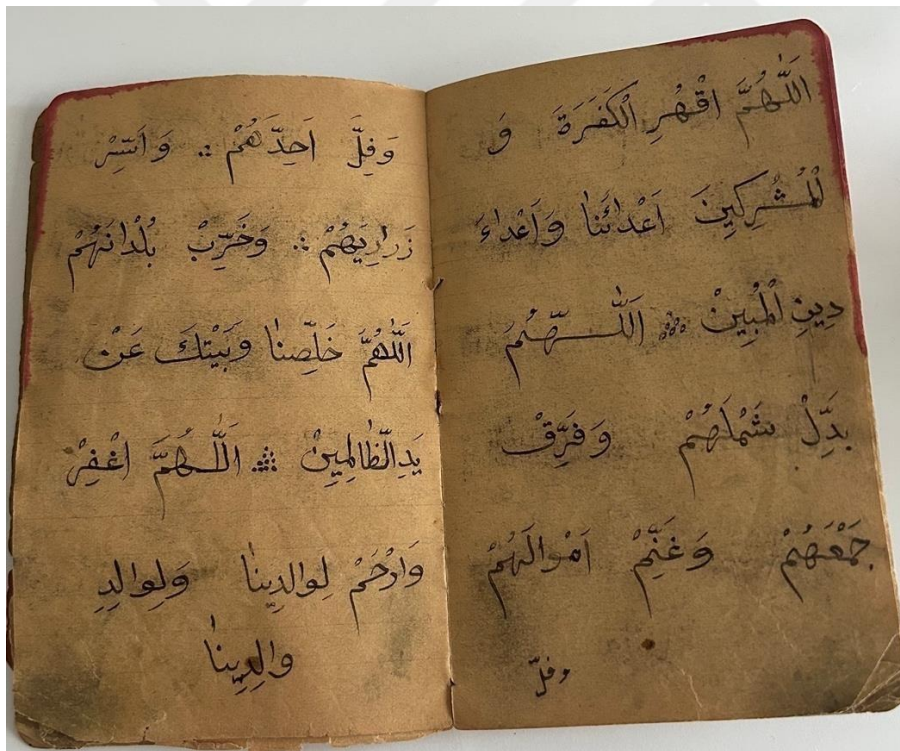 اَللّٰهُمَّ اقْهُرِ الْكَفَرَةَ وَ
لْمُشْرِكِينَ اَعْدائَنا وَاَعْداءَ
دِينِ الْمُبِينْ ∴ اَللّٰهُمَّ
بَدِّلْ شَمْلَهُمْ وَفَرِّقْ
جَمْعَهُمْ وَغَنِّمْ اَمْوالَهُمْ
وفلّ
وَفِلَّ اَحِدَّهُمْ ∴ وَاَسِّرْ
زَرارِيَهُمْ ∴ وَخَرِّبْ بُلْدانَهُمْ
اَللّٰهُمَّ خَلِّصْنا وَبَيْتَكَ عَنْ
يَدِ الظّالِمِينْ ∴ اَللّٰهُمَّ اغْفِرْ
وَارْحَمْ لِوالِدِينا وَلِوالِدِ
والِدِينا